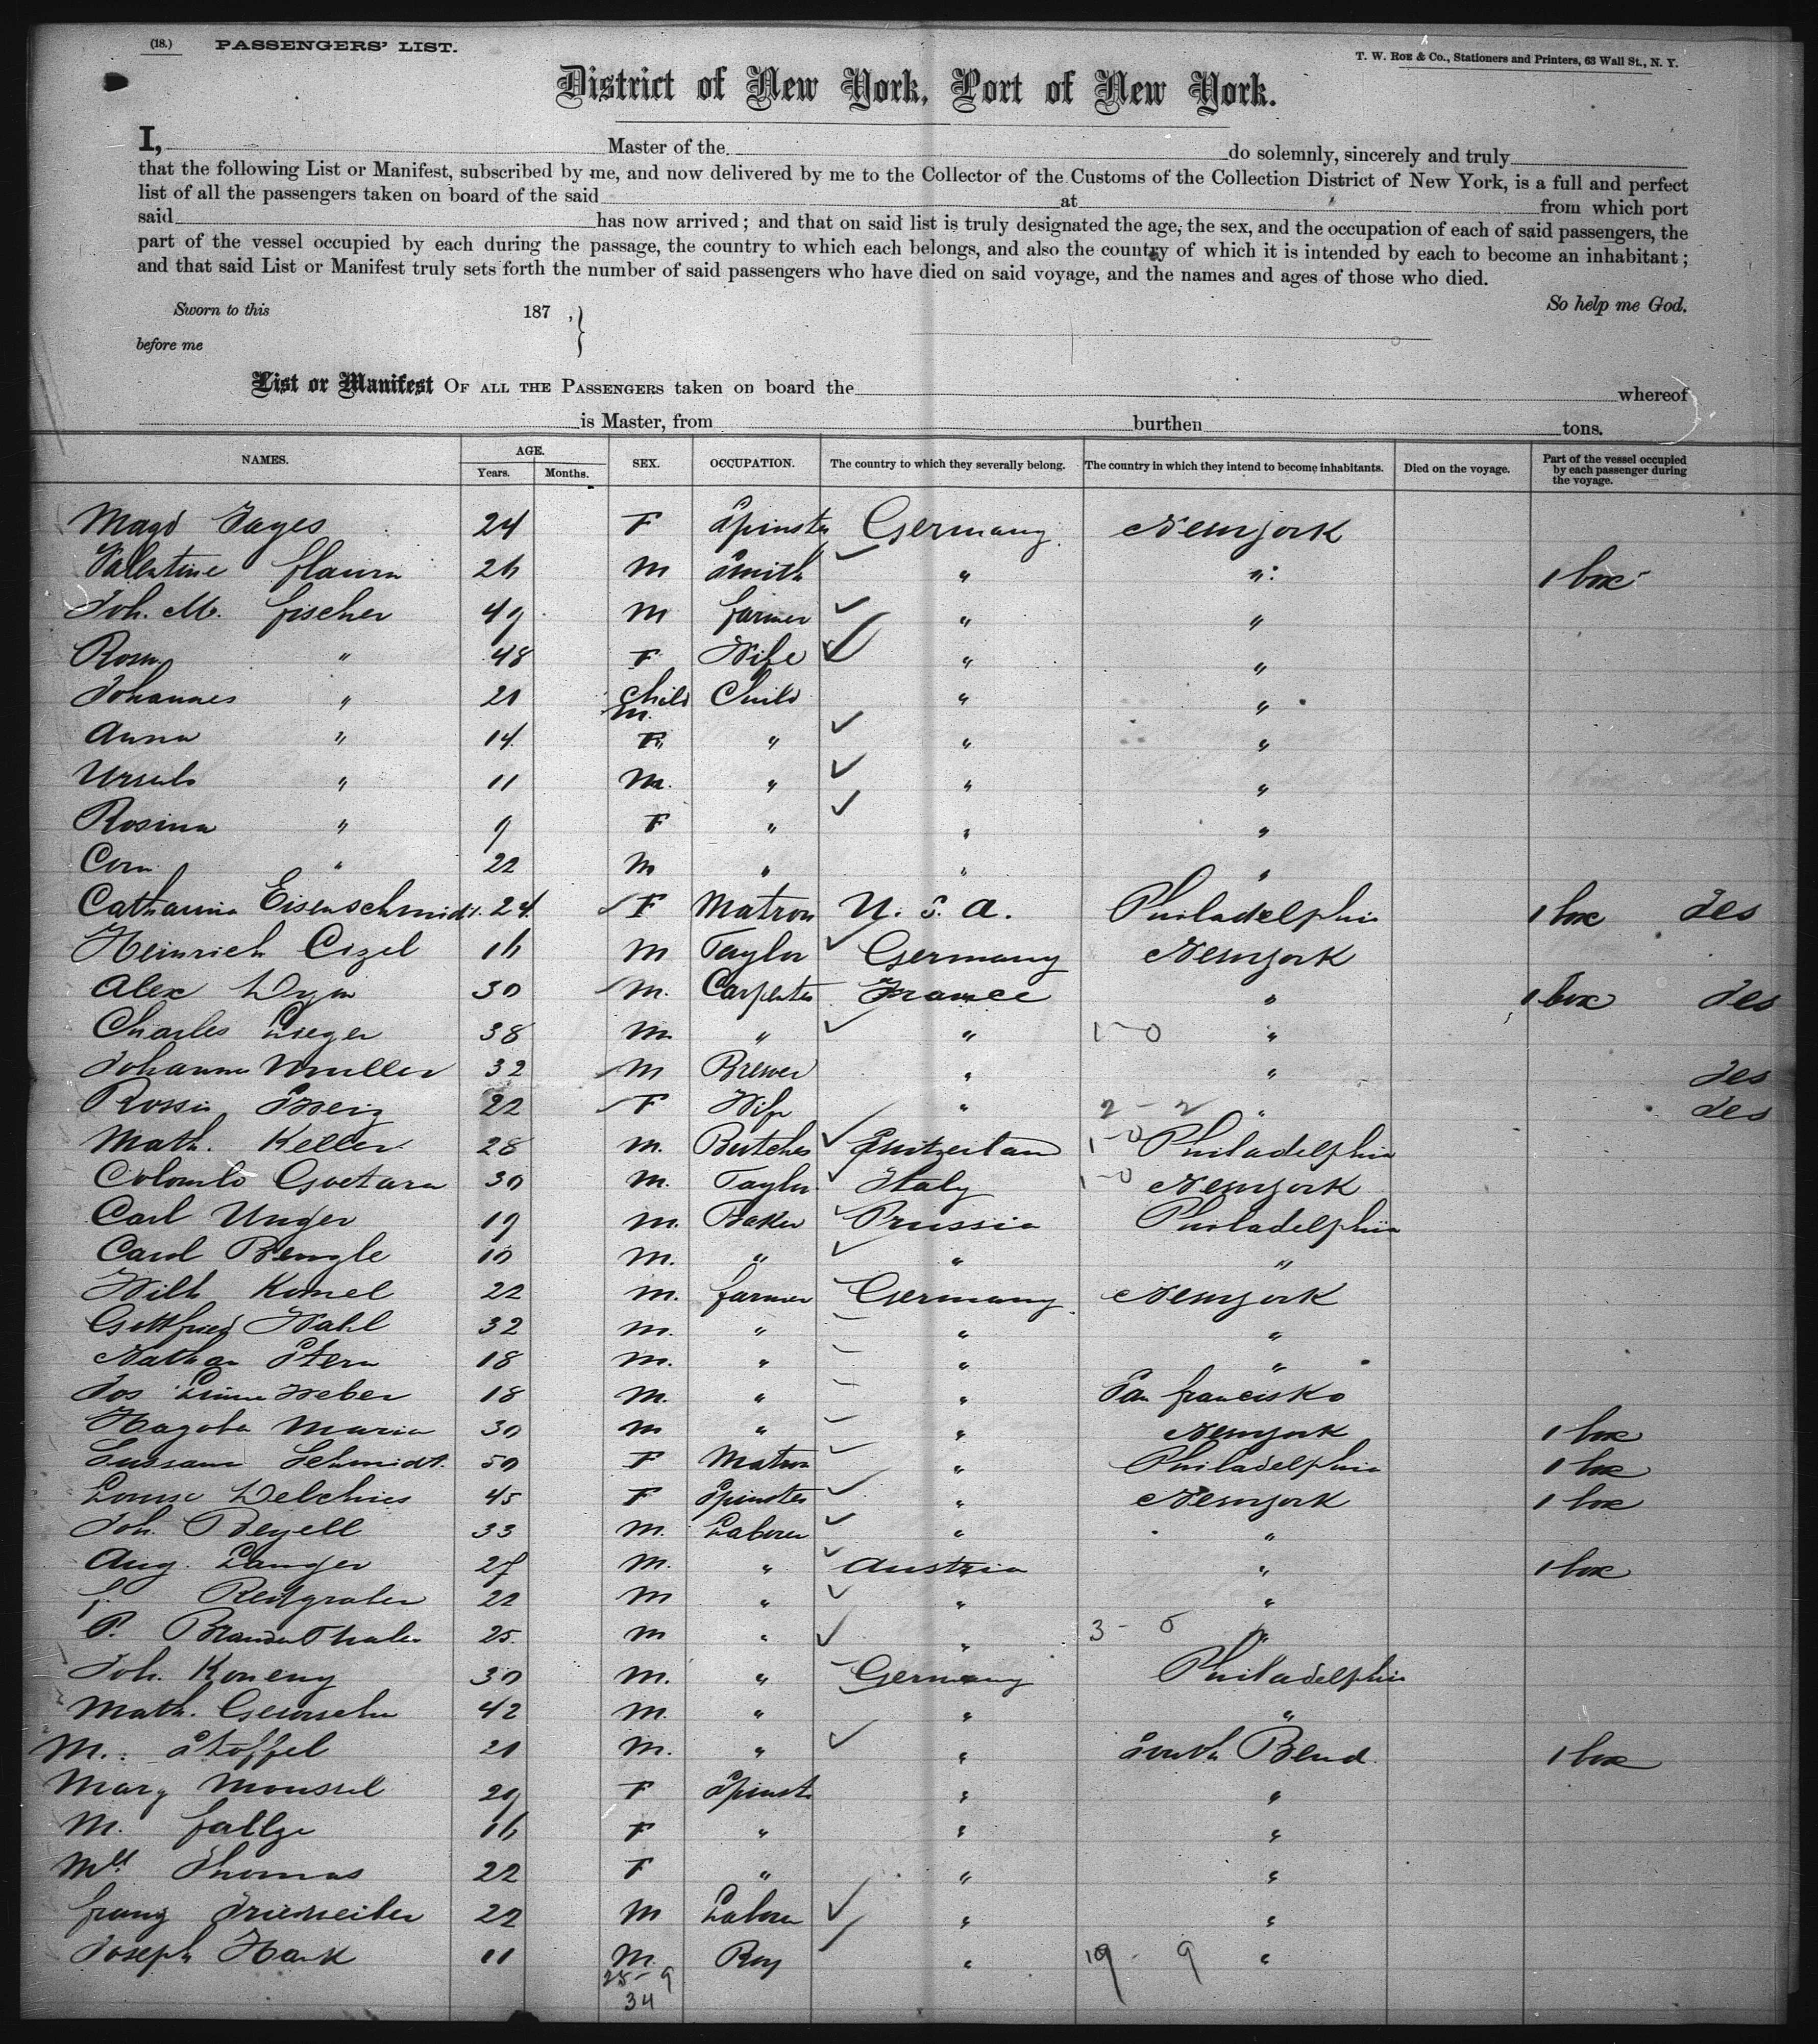 (18.) PASSENGERS' LIST.
T. W. ROE & Co., Stationers and Printers, 63 Wall St., N. Y.
District of New York, Port of New York.
I, Master of the do solemnly, sincerely and truly
that the following List or Manifest, subscribed by me, and now delivered by me to the Collector of the Customs of the Collection District of New York, is a full and perfect
list of all the passengers taken on board of the said at from which port
said has now arrived; and that on said list is truly designated the age, the sex, and the occupation of each of said passengers, the
part of the vessel occupied by each during the passage, the country to which each belongs, and also the country of which it is intended by each to become an inhabitant;
and that said List or Manifest truly sets forth the number of said passengers who have died on said voyage, and the names and ages of those who died.
Sworn to this 187 , So help me God.
before me
List or Manifest OF ALL THE PASSENGERS taken on board the whereof
is Master, from burthen tons.
NAMES. AGE. Years. Months. SEX. OCCUPATION. The country to which they severally belong. The country in which they intend to become inhabitants. Died on the voyage. Part of the vessel occupied by each passenger during the voyage.
24 F Spinster Germany Newyork
Valentine 26 M Smith " " 1 box
Joh. M. Fischer 49 M farmer " "
Rosa " 48 F Wife " "
Johannes " 21 Child M. Child " "
Anna " 14 F " " "
Ursula " 11 M. " " "
Rosina " 9 F " " "
" 22 M " " "
Catharina Eisenschmidt. 24 F Matron U. S. A. Philadelphia 1 box
Heinrich 16 M Taylor Germany Newyork
Alex 30 M. Carpenter France " 1 box
Charles 38 M " " 1-0 "
Johanna Muller 32 M Brewer " "
22 F Wife " 2-2 "
Math. Keller 28 M. Butcher Switzerland 1-0 Philadelphia
Colombo 30 M. Taylor Italy 1-0 Newyork
Carl Unger 19 M. Baker Prussia Philadelphia
Carol Bengle 10 M. " " "
Wilh 22 M. farmer Germany Newyork
Gottfried Wahl 32 M. " " "
Nathan Stern 18 M. " " "
Jos 18 M. " " San francisko
Maria 30 M " " Newyork 1 box
Sussana Schmidt. 50 F Matron " Philadelphia 1 box
Louise 45 F Spinster " Newyork 1 box
Joh. 33 M. Laborer " "
Aug. Langer 27 M. " Austria " 1 box
22 M " " "
P. 25 M " " 3-0 "
Joh. 30 M. " Germany Philadelphia
Math. 42 M. " " "
M. Stoffel 21 M. " " South Bend 1 box
Mary Moussel 29 F Spinst. " "
M. 16 F " " "
Thomas 22 F " " "
22 M Laborer " "
Joseph Hank 11 M. Boy " 19-9 "
25-9
34